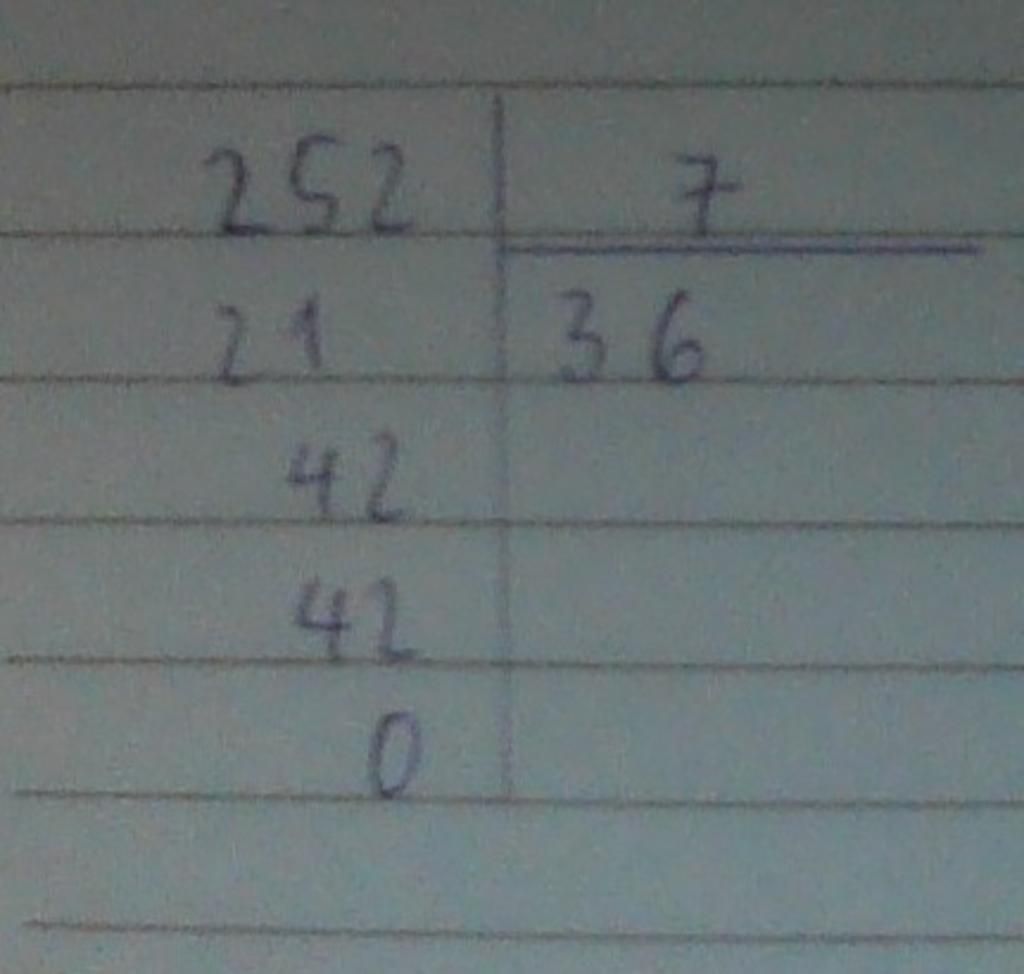 252 7
21 36
42
42
0